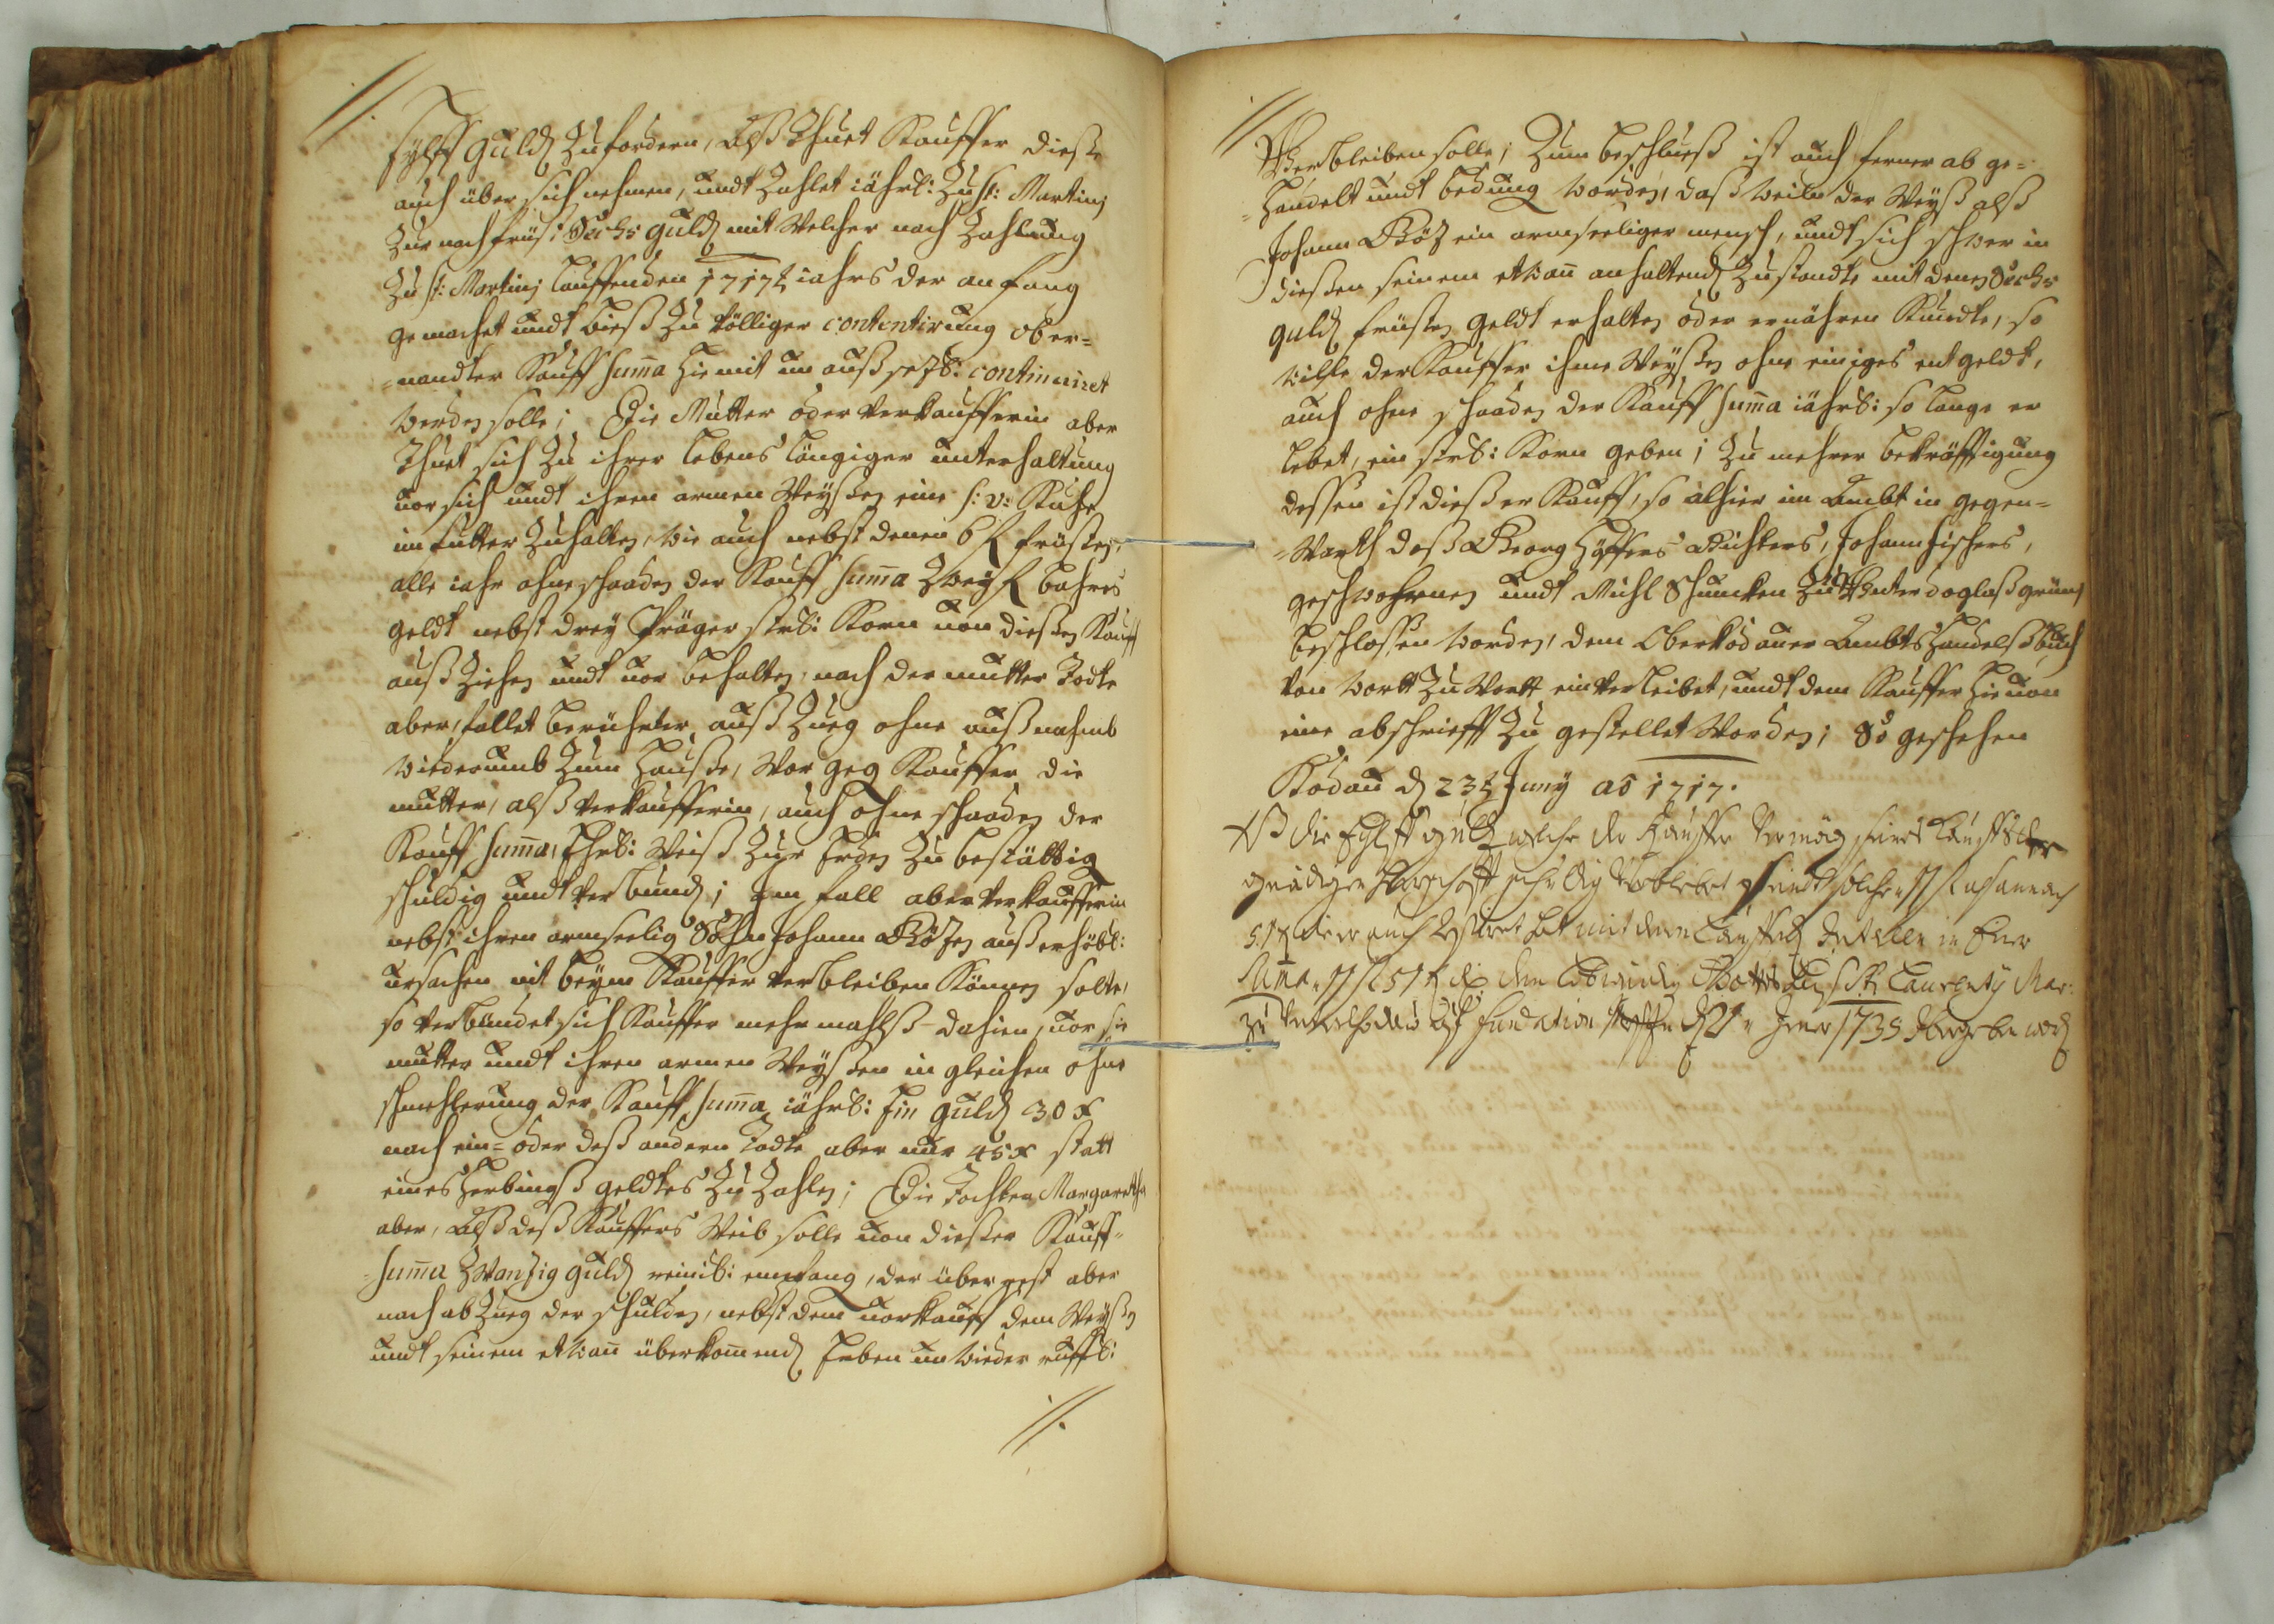 //.
Eylff Guld Zufordern, Alß thuet Kauffer dieße
auch über sich nehmen, undt Zahlet iährl: Zu St: Martinj
Zur nachfrüst Sechs Guld mit welcher nach Zahlung
Zu St: Martinj lauffenden 1717t iahrs der anfang
gemachet undt bieß Zu völliger contentirung ober=
=nandter Kauff Suma hiemit un außsetzl: continuiret
werden solle; Die Mutter oder Verkaufferin aber
thuet sich Zu ihrer lebens längiger unterhaltung
vor sich undt ihren armen Weyßen eine s: v: Kuhe
im Futter Zuhalten, wie auch nebst denen 6 f früsten,
alle iahr ohne schaden der Kauff Suma Zwey f bahres
geldt nebst drey Präger strl: Korn von dießen Kauff
auß Ziehen undt vor behalten, nach der mutter Todte
aber, fallet berührter auß Zueg ohne außnahmb
wiederumb Zum Hauße, Wor geg Kauffer die
mutter, alß Verkaufferin, auch ohne schaden der
Kauff Suma, Ehrl: Weiß Zur Erden Zu bestättig
schuldig undt verbund; Im fall aber Verkaufferin
nebst ihren armseelig Sohn Johann Götzen außerhöbl:
ursachen nit beym Kauffer verbleiben können solte,
so verbündet sich Kauffer mehrmahlß dahien, vor sie
mutter undt ihren armen Weyßen in gleichen ohne
schmehlerung der Kauff Suma iährl: Ein Guld 30 x
nach ein= oder deß andern Todte aber nur 45 x statt
eines Herbingß geldtes Zu Zahlen; Die Tochter Margaretha
aber, Alß deß Kauffers Weib solle von dießer Kauff=
=Suma Zwanzig Guld reinl: empfang, der über rest aber
nach ab Zueg der schulden, nebst dem Vorkauff dem Weyßen
undt seinem etwan überkomend Erben un wieder ruffl:
//.
//.
Verbleiben solle; Zum beschlueß ist auch ferner ab ge=
=handelt undt bedung worden, daß weilen der Weyß alß
Johann Götz ein armseeliger mensch, undt sich schwer in
dießen seinem etwan anhaltend Zustandte mit denen Sechs
Guld früsten Geldt erhalten oder ernähren kundte, so
wille der Kauffer ihme Weyßen ohne einiges entgeldt,
auch ohne schaden der Kauff Suma iährl: so lange er
lebet, ein strl: Korn geben; Zu mehrer bekräfftigung
dessen ist dießer Kauff, so alhier im Ambt in gegen=
=warth deß Georg Höffers Richters, Johann Fischers,
geschwohrnen undt Michl Schuncken Zu Unter
beschlossen worden, dem Oberkodauer Ambts Handelßbuch
von wortt Zu wortt einverleibet, undt dem Kauffer hievon
eine abschriefft Zu gestellet worden; So geschehen
Kodau d 23t Juny ao 1717.
NB die Eylff guld welche der Kauffer Vermög seines Kauffs der
gnädigen Herschafft schuldig Verbliebet
51 x
Suma 51 x St: Laurenty Mar:
Zu fundation 1735